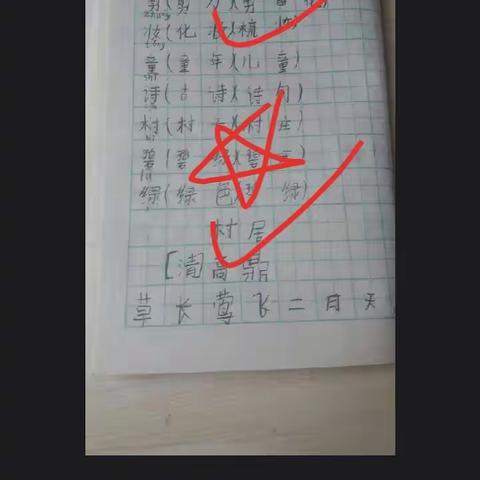 剪(剪刀)(剪
zhuāng
妆(化妆)(梳妆)
tóng
童(童年)(儿童)
shī
诗(古诗)(诗句)
村(村 村庄)
碧(碧绿)(碧
绿(绿色 绿)
村居
[清高鼎
草长莺飞二月天